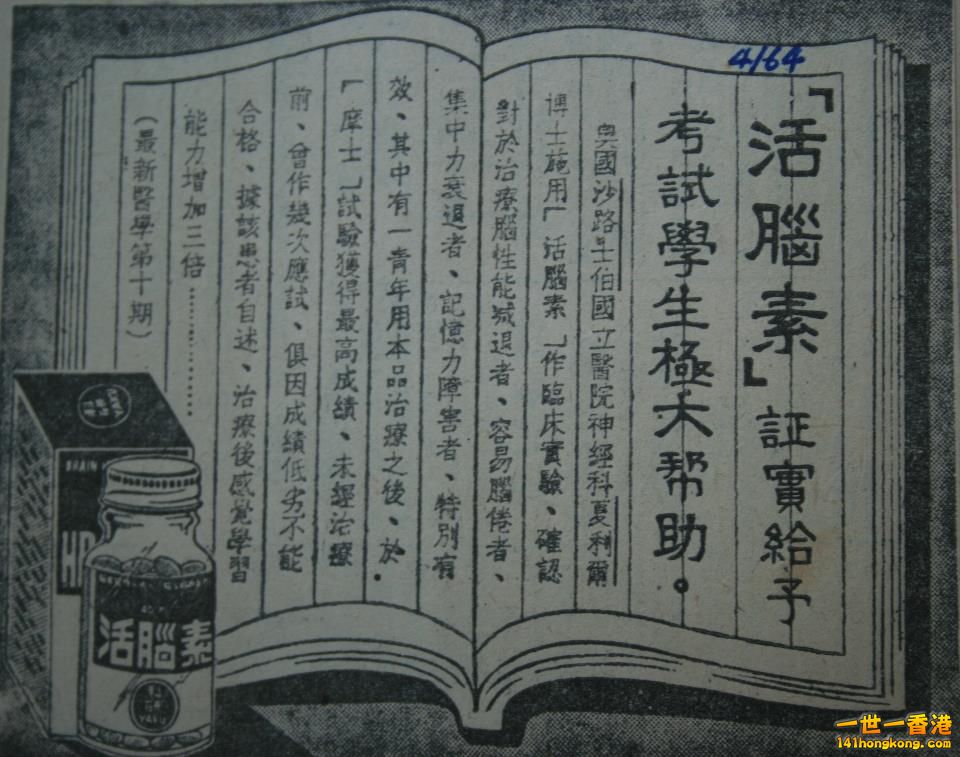 4/64
「活腦素」証實給予
考試學生極大帮助。
奥國沙路士伯國立醫院神經科夏利爾
博士施用「活腦素」作臨床實驗、確認
對於治療腦性能減退者、容易腦倦者、
集中力衰退者、記憶力障害者、特別有
效、其中有一青年用本品治療之後、於
「摩士」試驗獲得最高成績、未經治療
前、曾作幾次應試、俱因成績低劣不能
合格、據該患者自述、治療後感覺學習
能力增加三倍…………
（最新醫學第十期）
BRAIN
活腦素
YAKU
一世一香港
141hongkong.com